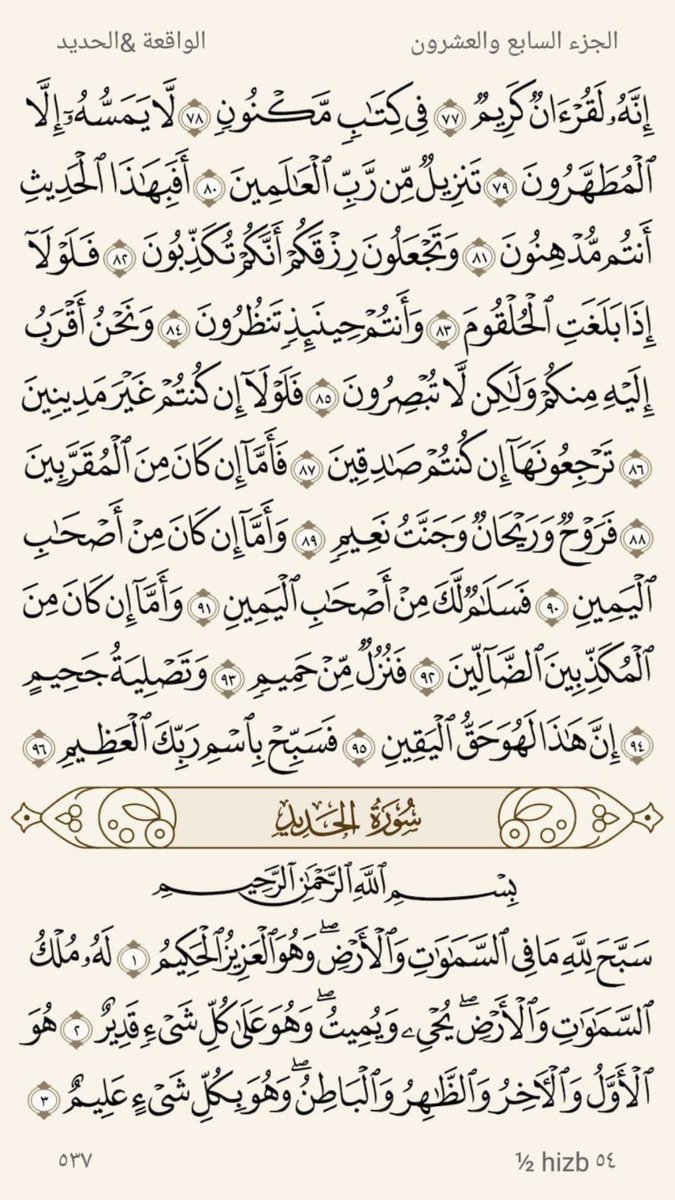 الجزء السابع والعشرون
الواقعة &الحديد
إِنَّهُۥ لَقُرْءَانٌ كَرِيمٌ ٧٧ فِى كِتَٰبٍ مَّكْنُونٍ ٧٨ لَّا يَمَسُّهُۥٓ إِلَّا
ٱلْمُطَهَّرُونَ ٧٩ تَنزِيلٌ مِّن رَّبِّ ٱلْعَٰلَمِينَ ٨٠ أَفَبِهَٰذَا ٱلْحَدِيثِ
أَنتُم مُّدْهِنُونَ ٨١ وَتَجْعَلُونَ رِزْقَكُمْ أَنَّكُمْ تُكَذِّبُونَ ٨٢ فَلَوْلَآ
إِذَا بَلَغَتِ ٱلْحُلْقُومَ ٨٣ وَأَنتُمْ حِينَئِذٍ تَنظُرُونَ ٨٤ وَنَحْنُ أَقْرَبُ
إِلَيْهِ مِنكُمْ وَلَٰكِن لَّا تُبْصِرُونَ ٨٥ فَلَوْلَآ إِن كُنتُمْ غَيْرَ مَدِينِينَ
٨٦ تَرْجِعُونَهَآ إِن كُنتُمْ صَٰدِقِينَ ٨٧ فَأَمَّآ إِن كَانَ مِنَ ٱلْمُقَرَّبِينَ
٨٨ فَرَوْحٌ وَرَيْحَانٌ وَجَنَّتُ نَعِيمٍ ٨٩ وَأَمَّآ إِن كَانَ مِنْ أَصْحَٰبِ
ٱلْيَمِينِ ٩٠ فَسَلَٰمٌ لَّكَ مِنْ أَصْحَٰبِ ٱلْيَمِينِ ٩١ وَأَمَّآ إِن كَانَ مِنَ
ٱلْمُكَذِّبِينَ ٱلضَّآلِّينَ ٩٢ فَنُزُلٌ مِّنْ حَمِيمٍ ٩٣ وَتَصْلِيَةُ جَحِيمٍ
٩٤ إِنَّ هَٰذَا لَهُوَ حَقُّ ٱلْيَقِينِ ٩٥ فَسَبِّحْ بِٱسْمِ رَبِّكَ ٱلْعَظِيمِ ٩٦
سُورَةُ الحَدِيدِ
بِسْمِ ٱللَّهِ ٱلرَّحْمَٰنِ ٱلرَّحِيمِ
سَبَّحَ لِلَّهِ مَا فِى ٱلسَّمَٰوَٰتِ وَٱلْأَرْضِۖ وَهُوَ ٱلْعَزِيزُ ٱلْحَكِيمُ ١ لَهُۥ مُلْكُ
ٱلسَّمَٰوَٰتِ وَٱلْأَرْضِۖ يُحْىِۦ وَيُمِيتُۖ وَهُوَ عَلَىٰ كُلِّ شَىْءٍ قَدِيرٌ ٢ هُوَ
ٱلْأَوَّلُ وَٱلْءَاخِرُ وَٱلظَّٰهِرُ وَٱلْبَاطِنُۖ وَهُوَ بِكُلِّ شَىْءٍ عَلِيمٌ ٣
½ hizb ٥٤
٥٣٧